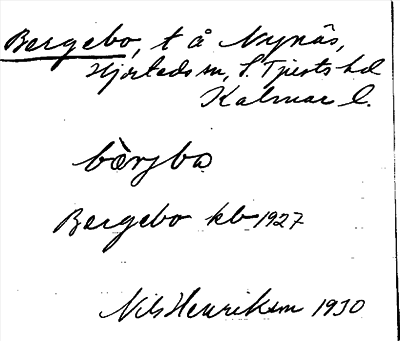 Bergebo, t å Nynäs,
Hjorteds sn, S. Tjusts hd
Kalmar l.
bærjbo
Bergebo kb 1927
Nils Henriksson 1930